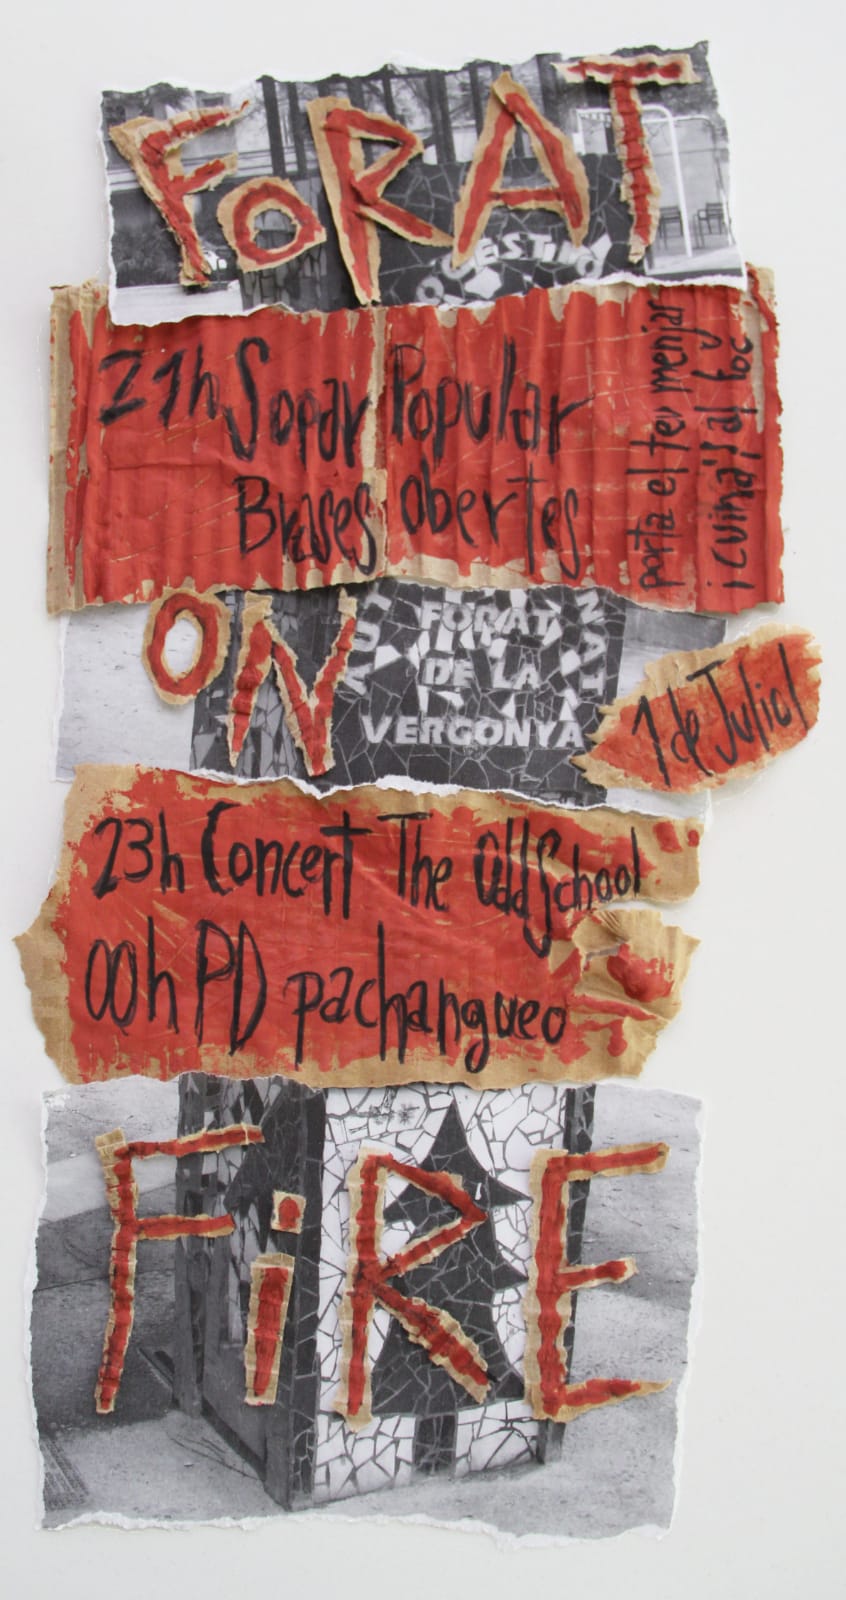 FoRAT
OGESTIO
21h Sopar Popular
Brases obertes
porta el teu menjar
i cuina'l al foc
ON
FORAT
DE LA
VERGONYA
1 de Juliol
23h Concert The Odd School
00h PD pachangueo
FiRE